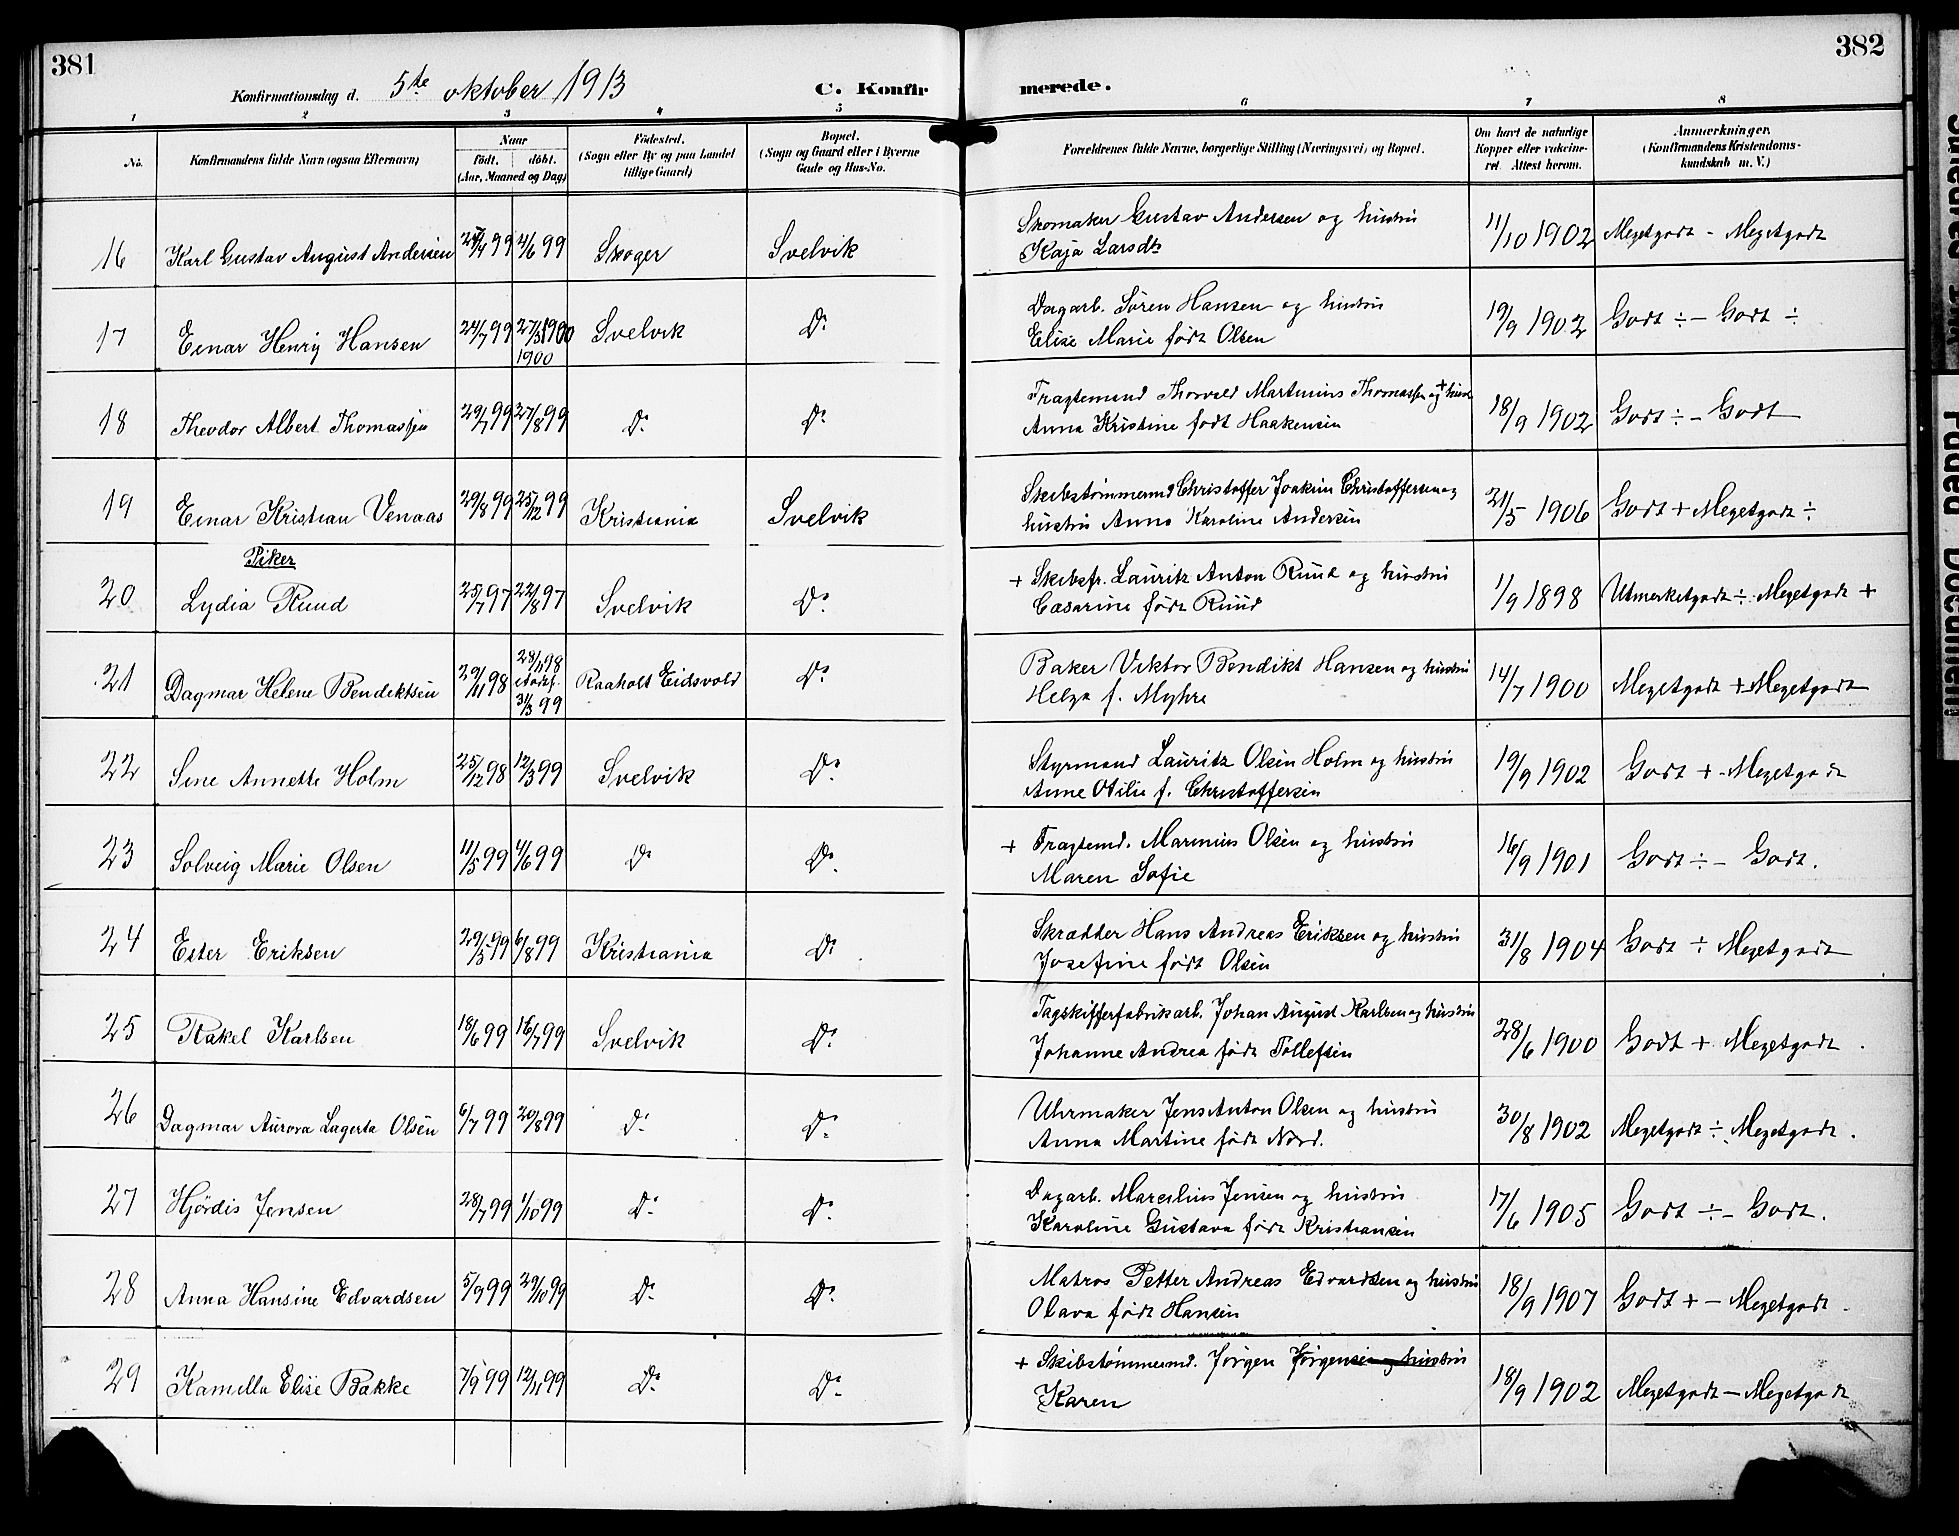 381
382
Konfirmationsdag d. 5te oktober 1913
C. Konfirmerede.
1 2 3 4 5 6 7 8
No. Konfirmandens fulde Navn (ogsaa Efternavn) Naar født. døbt. (Aar, Maaned og Dag) Fødested. (Sogn eller By og paa Landet tillige Gaard) Bopæl. (Sogn og Gaard eller i Byerne Gade og Hus-No. Forældrenes fulde Navne, borgerlige Stilling (Næringsvei) og Bopæl. Om havt de naturlige Kopper eller vakcineret. Attest herom. Anmærkninger. (Konfirmandens Kristendomskundskab m. V.)
16 Karl Gustav August Andersen 99 4/6 99 Skoger Svelvik Skomaker Gustav Andersen og hustru
Kaja Larsdt 11/10 1902 Megetgodt - Megetgodt
17 Einar Henry Hansen 24/7 99 27/3 1900
1900 Svelvik Do Dagarb. Søren Hansen og hustru
Elise Marie født Olsen 19/9 1902 Godt ÷ - Godt ÷
18 Theodor Albert Thomassen 29/7 99 27/8 99 Do Do Fragtemand Thorvald Martinius Thomassen og + hustr
Anna Kristine født Haakensen 18/9 1902 Godt ÷ - Godt
19 Einar Kristian Venaas 29/8 99 25/12 99 Kristiania Svelvik Skibstømmermd Christoffer Joakim Christoffersen og
hustru Anna Karoline Andersen 21/5 1906 Godt + Megetgodt ÷
Piker
20 Lydia Ruud 25/7 97 22/8 97 Svelvik Do + Skibsfr. Lauritz Anton Ruud og hustru
Casarine født Ruud 1/9 1898 Utmerketgodt ÷ Megetgodt +
21 Dagmar Helene Bendiktsen 29/11 98 98
stadf.
31/3 99 Raaholt Eidsvold Do Baker Viktor Bendikt Hansen og hustru
Helga f. Myhre 14/7 1900 Megetgodt + Megetgodt
22 Sine Annette Holm 25/12 98 12/3 99 Svelvik Do Styrmand Lauritz Olsen Holm og hustru
Anne Otilie f. Christoffersen 19/9 1902 Godt + - Megetgodt
23 Solveig Marie Olsen 11/5 99 4/6 99 Do Do + Fragtemd. Marinius Olsen og hustru
Maren Sofie 16/9 1901 Godt ÷ - Godt.
24 Ester Eriksen 29/5 99 6/8 99 Kristiania Do Skrædder Hans Andreas Eriksen og hustru
Josefine født Olsen 31/8 1904 Godt ÷ Megetgodt
25 Rakel Karlsen 18/6 99 16/7 99 Svelvik Do Tagskifferfabrikarb. Johan August Karlsen og hustru
Johanne Andrea født Tollefsen 28/6 1900 Godt + Megetgodt.
26 Dagmar Aurora Lagerta Olsen 6/7 99 20/8 99 Do Do Uhrmaker Jens Anton Olsen og hustru
Anna Martine født Nord. 30/8 1902 Megetgodt ÷ Megetgodt.
27 Hjørdis Jensen 28/7 99 1/10 99 Do Do Dagarb. Marcilius Jensen og hustru
Karoline Gustava født Kristiansen 17/6 1905 Godt ÷ - Godt.
28 Anna Hansine Edvardsen 5/9 99 29/10 99 Do Do Matros Petter Andreas Edvardsen og hustru
Olava født Hansen 18/9 1907 Godt + - Megetgodt.
29 Kamilla Elise Bakke 7/9 99 12/11 99 Do Do + Skibstømmermd. Jørgen Jørgensen og hustru
Karen 18/9 1902 Megetgodt - Megetgodt